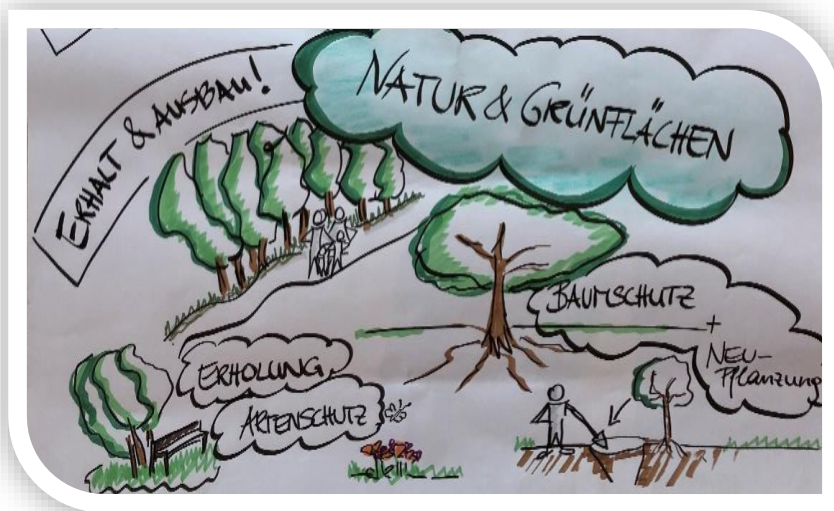 ERHALT & AUSBAU!
NATUR & GRÜNFLÄCHEN
BAUMSCHUTZ
+
NEU-
Pflanzung
ERHOLUNG
ARTENSCHUTZ